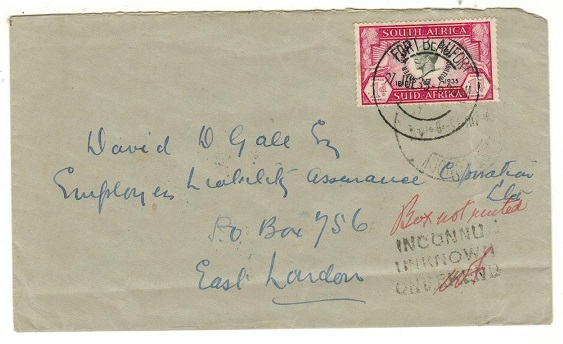 SOUTH AFRICA
FORT BEAUFORT
SUID-AFRIKA
David D Gale Esq
Employers Liability Assurance Corporation
Ltd
P.O. Box 756
East London
Box not rented
INCONNU
UNKNOWN
ONBEKEND